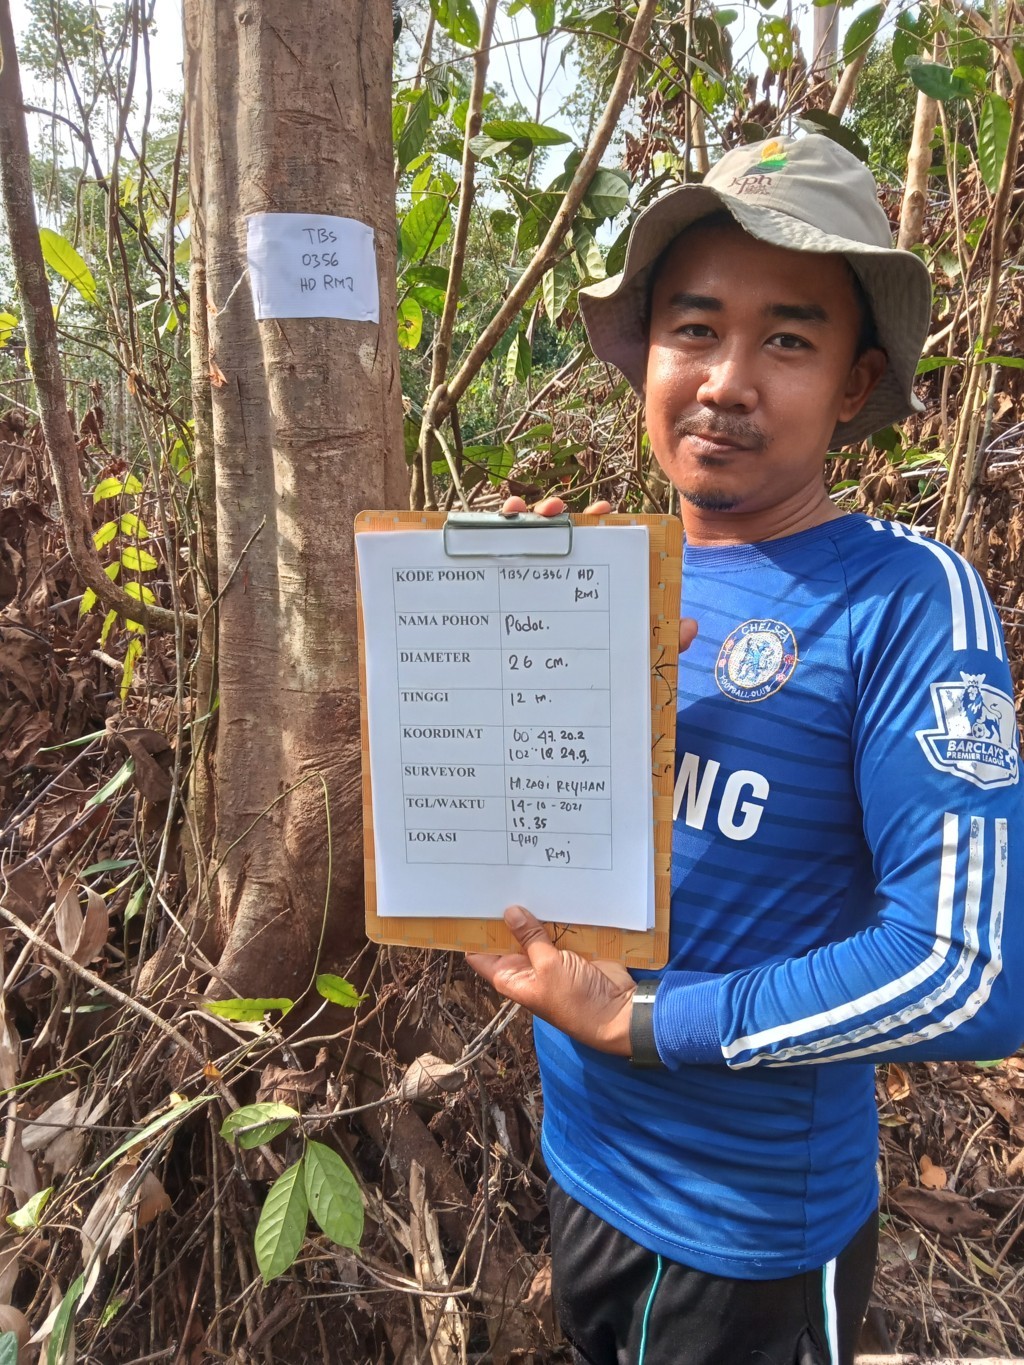 TBS
0356
HD RMJ
kpn
KODE POHON TBS/0356/ HD
RMJ
NAMA POHON Podol.
DIAMETER 26 cm.
TINGGI 12 m.
KOORDINAT 00° 47. 20.2
102° 18. 24.9.
SURVEYOR M. ZAQI REYHAN
TGL/WAKTU 14-10-2021
15.35
LOKASI LPHD
RMJ
CHELSEA
FOOTBALL CLUB
BARCLAYS
PREMIER LEAGUE
NG